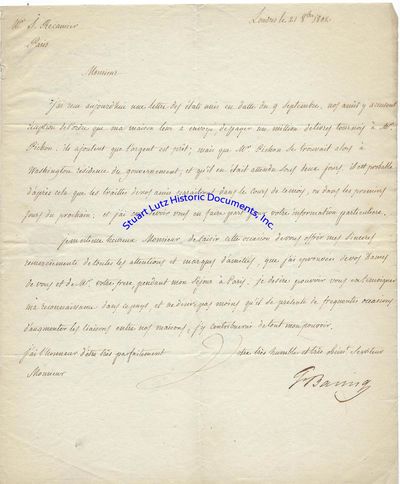 Mr. J. Recamier
Londres le 21 8bre 1802.
Paris
Monsieur
J'ai reçu aujourd'hui une lettre des états unis en datte du 9 Septembre. nos amis y accusent
réception de l'ordre que ma maison leur a envoyé de payer un million de livres tournois à Mr.
Pichon: ils ajoutent que l'argent est prêt; mais que Mr. Pichon se trouvait alors à
Washington résidence du gouvernement, et qu'il en était attendu sous deux jours. il est probable
d'après cela que les traites de vos amis seront dans le cours de ce mois, ou dans les premiers
jours du prochain; et j'ai devoir vous en faire part pour votre information particulière.
Stuart Lutz Historic Documents, Inc.
Je m'estime heureux Monsieur, de saisir cette occasion de vous offrir mes sincères
remerciements de toutes les attentions et marques d'amitiés, que j'ai éprouvées de vos Dames
de vous et de Mr. votre frère, pendant mon séjour à Paris. Je désire pouvoir vous en témoigner
ma reconnaissance dans ce pays, et ne désire pas moins qu'il se présente de fréquentes occasions
d'augmenter les liaisons entre nos maisons; j'y contribuerai de tout mon pouvoir.
J'ai l'honneur d'être très parfaitement
Votre très humble et très obéist. Serviteur
Monsieur
Baring